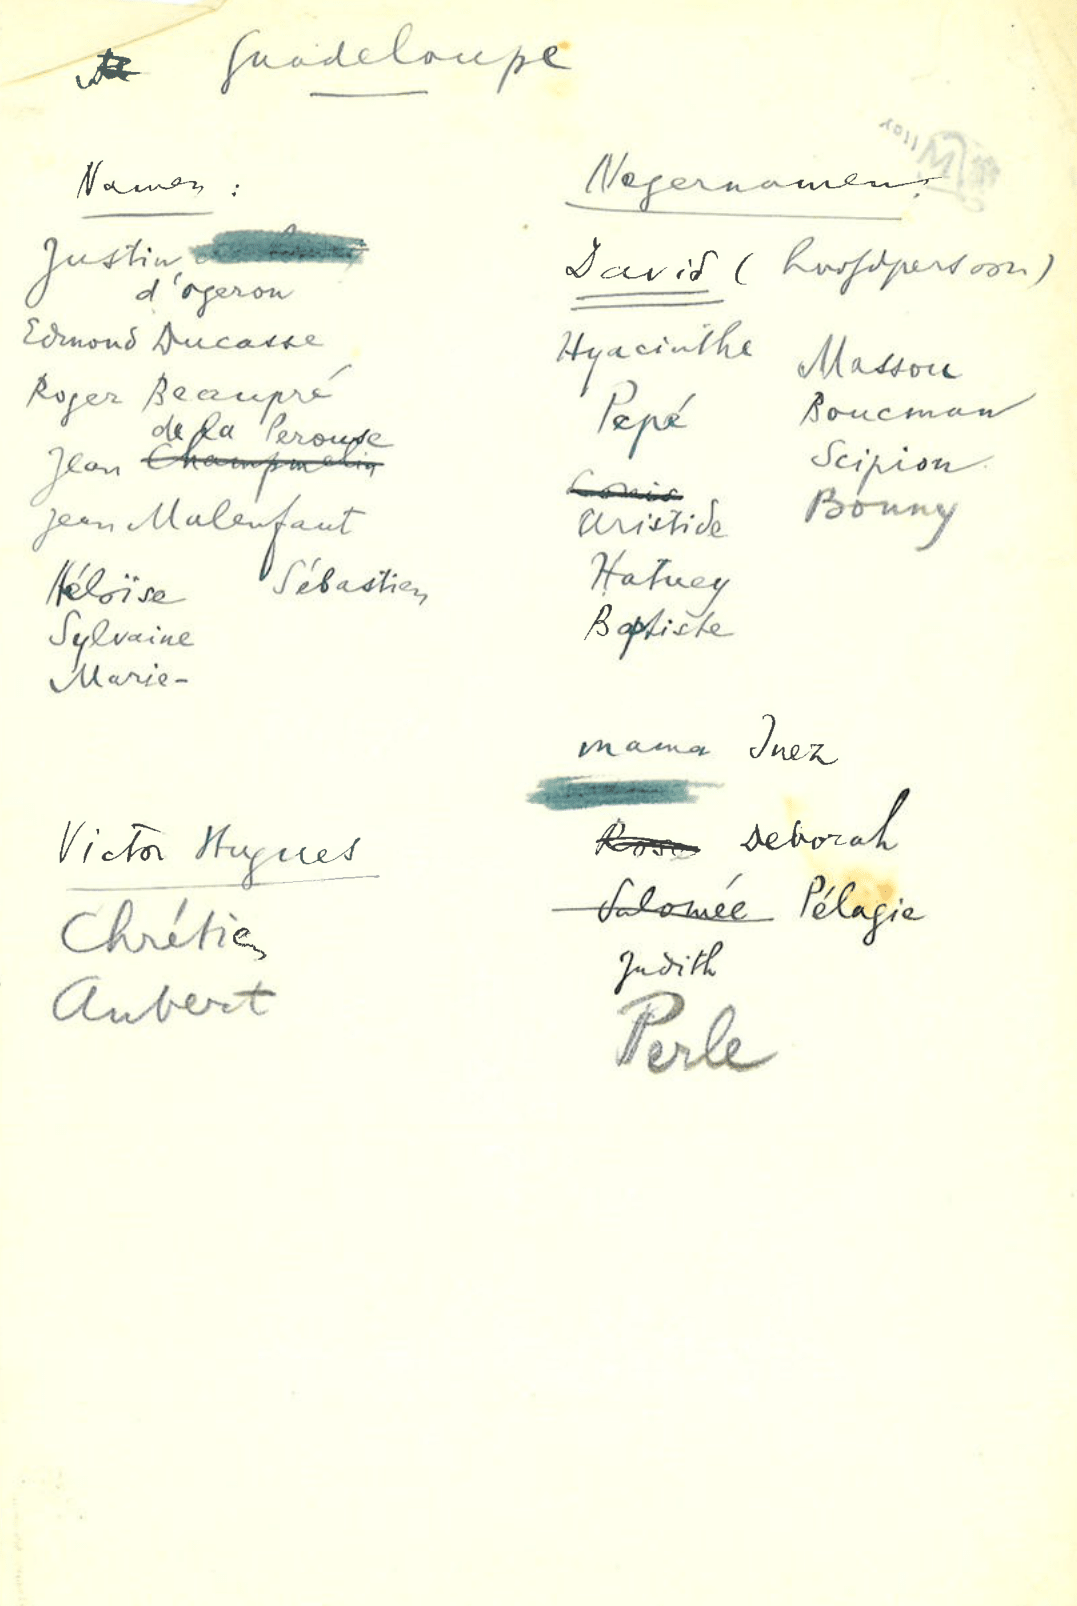 Guadeloupe
Namen :
Justin
d'ogeron
Edmond Ducasse
Roger Beaupré
de la Perouse
Jean Champmelin
Jean Malenfaut
Héloïse Sébastien
Sylvaine
Marie-
Victor Hugues
Chrétien
Aubert
Negernamen:
David (hoofdpersoon)
Hyacinthe Massou
Pepé Boucman
Scipion
Louis
Aristide Bonny
Hatuey
Baptiste
mama Inez
Rose Deborah
Salomée Pélagie
Judith
Perle